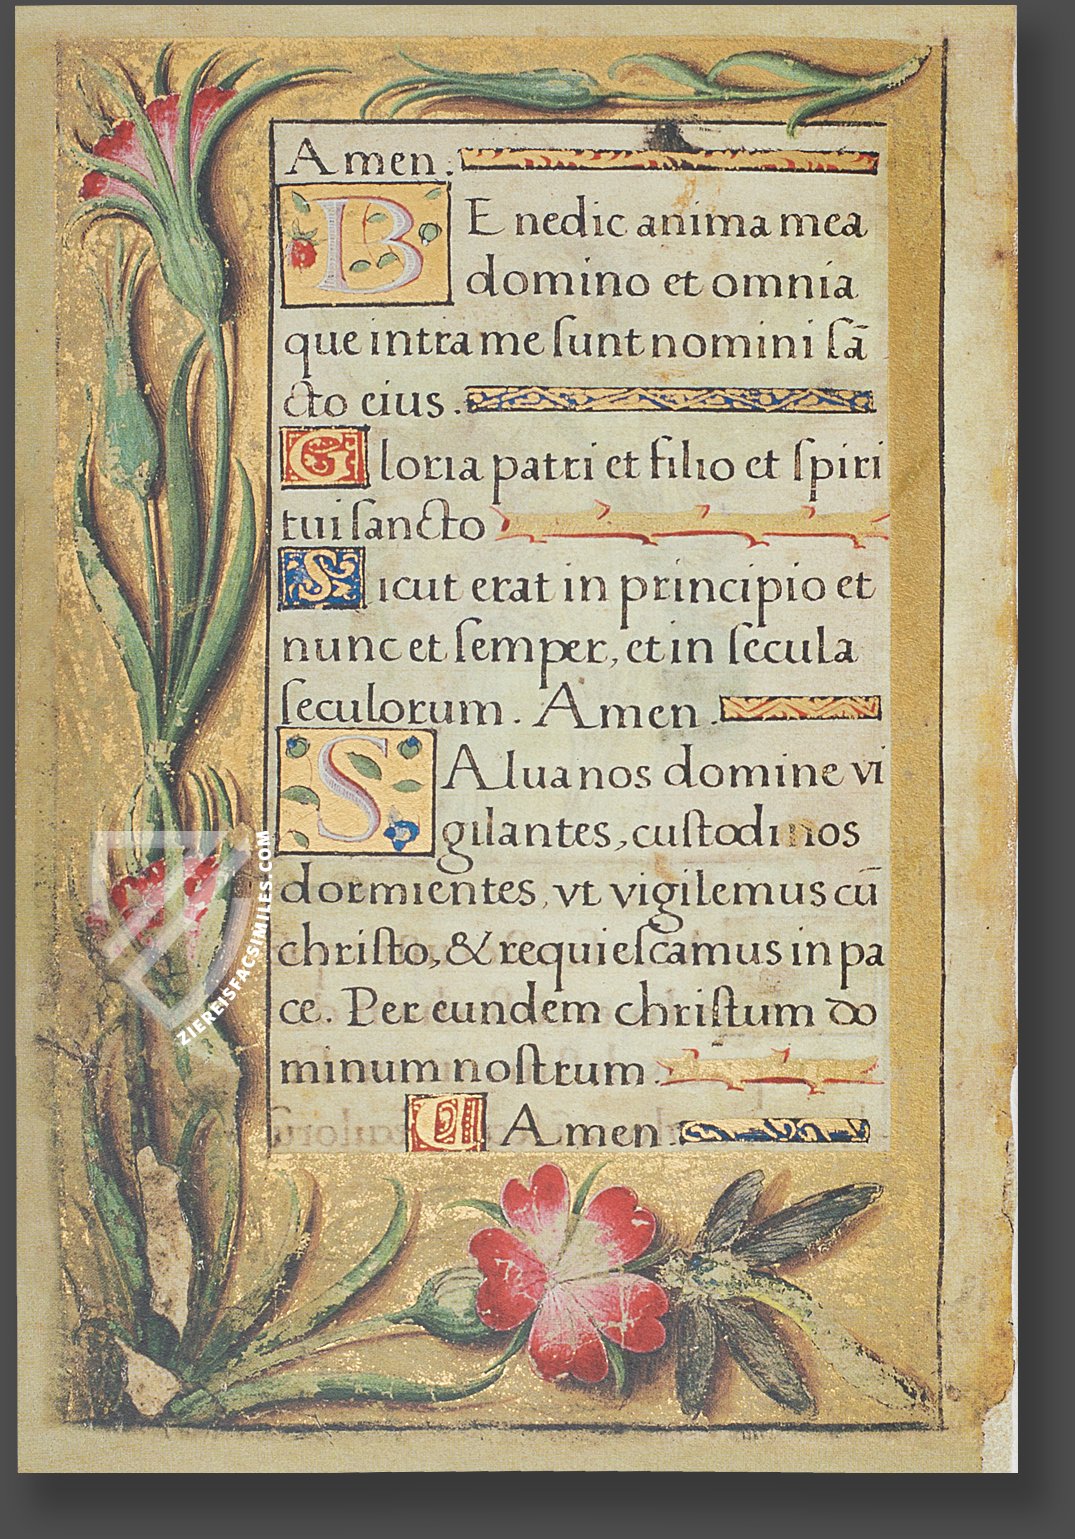 Amen.
BEnedic anima mea
domino et omnia
que intra me ſunt nomini ſā
cto eius.
Gloria patri et filio et ſpiri
tui ſancto
Sicut erat in principio et
nunc et ſemper, et in ſecula
ſeculorum. Amen.
SAlua nos domine vi
gilantes, cuſtodi nos
dormientes, vt vigilemus cū
chriſto, & requieſcamus in pa
ce. Per eundem chriſtum do
minum noſtrum.
Amen
ZIEREISFACSIMILES.COM